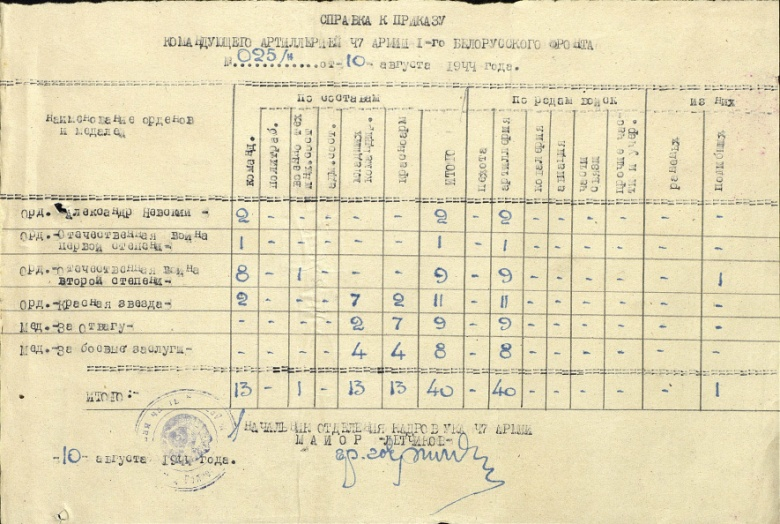 СПРАВКА К ПРИКАЗУ
КОМАНДУЮЩЕГО АРТИЛЛЕРИЕЙ 47 АРМИИ 1-го БЕЛОРУССКОГО ФРОНТА
№ 025/н от -10- августа 1944 года.
Наименование орденов и медалей
По составам
По родам войск
Из них
команд.
политраб.
военно тех
адм.сост.
младших командир.
красноарм
ИТОГО
пехота
артиллерия
кавалерия
авиация
части связи
прочие час-ти и учр.
раненых
погибших
Орд. Александр Невский - 2 - - - - - 2 - 2 - - - - - -
Орд.-Отечественная война первой степени- 1 - - - - - 1 - 1 - - - - - -
Орд.-Отечественная война второй степени- 8 - 1 - - - 9 - 9 - - - - - 1
Орд.-Красная звезда- 2 - - - 7 2 11 - 11 - - - - - -
Мед.-За Отвагу- - - - - 2 7 9 - 9 - - - - - -
Мед.-За боевые заслуги- - - - - 4 4 8 - 8 - - - - - -
ИТОГО:- 13 - 1 - 13 13 40 - 40 - - - - - 1
НАЧАЛЬНИК ОТДЕЛЕНИЯ КАДРОВ УКА 47 АРМИИ
МАЙОР -ЛЕТЧИКОВ-
-10- августа 1944 года.